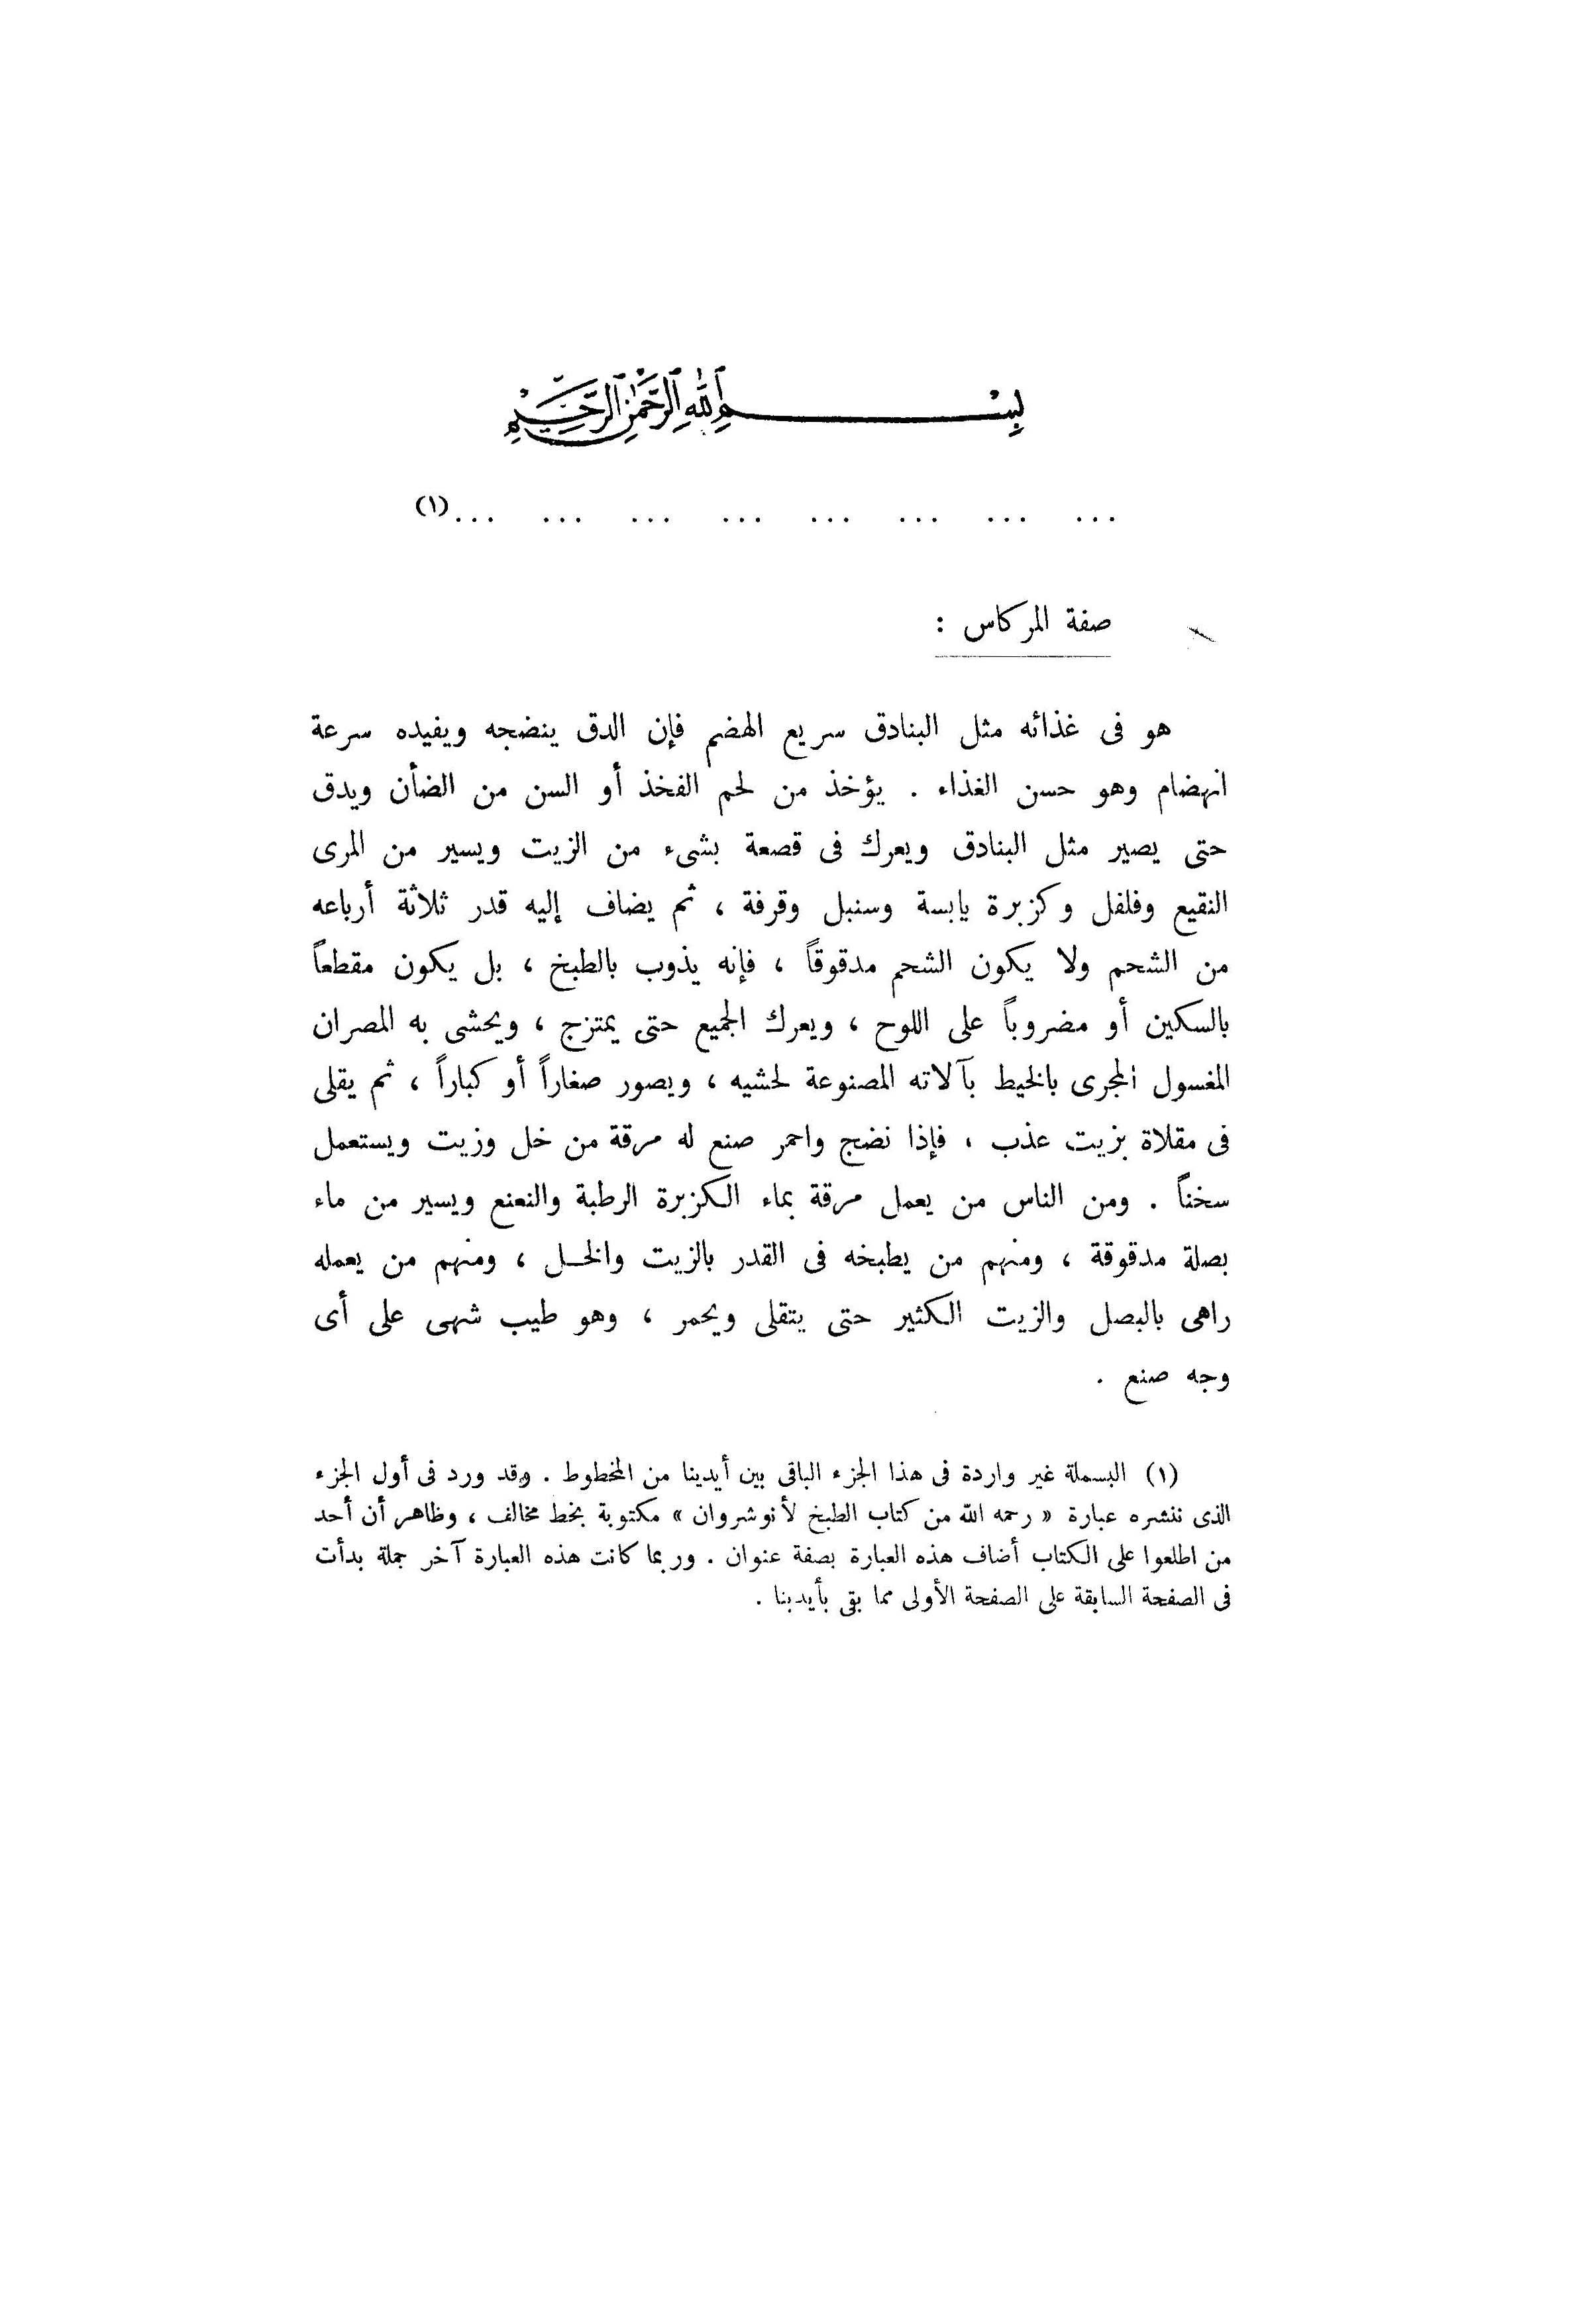 بِسْمِ ٱللَّهِ ٱلرَّحْمَٰنِ ٱلرَّحِيمِ
... ... ... ... ... ... ... ...(١)
صفة المركاس :
هو فى غذائه مثل البنادق سريع الهضم فإن الدق ينضجه ويفيده سرعة
انهضام وهو حسن الغذاء . يؤخذ من لحم الفخذ أو السن من الضأن ويدق
حتى يصير مثل البنادق ويعرك فى قصعة بشىء من الزيت ويسير من المرى
النقيع وفلفل وكزبرة يابسة وسنبل وقرفة ، ثم يضاف إليه قدر ثلاثة أرباعه
من الشحم ولا يكون الشحم مدقوقاً ، فإنه يذوب بالطبخ ، بل يكون مقطعاً
بالسكين أو مضروباً على اللوح ، ويعرك الجميع حتى يمتزج ، ويحشى به المصران
المغسول المجرى بالخيط بآلاته المصنوعة لحشيه ، ويصور صغاراً أو كباراً ، ثم يقلى
فى مقلاة بزيت عذب ، فإذا نضج واحمر صنع له مرقة من خل وزيت ويستعمل
سخناً . ومن الناس من يعمل مرقة بماء الكزبرة الرطبة والنعنع ويسير من ماء
بصلة مدقوقة ، ومنهم من يطبخه فى القدر بالزيت والخل ، ومنهم من يعمله
راهى بالبصل والزيت الكثير حتى يتقلى ويحمر ، وهو طيب شهى على أى
وجه صنع .
(١) البسملة غير واردة فى هذا الجزء الباقى بين أيدينا من المخطوط . وقد ورد فى أول الجزء
الذى ننشره عبارة « رحمه الله من كتاب الطبخ لأنوشروان » مكتوبة بخط مخالف ، وظاهر أن أحد
من اطلعوا على الكتاب أضاف هذه العبارة بصفة عنوان . وربما كانت هذه العبارة آخر جملة بدأت
فى الصفحة السابقة على الصفحة الأولى مما بقى بأيدينا .